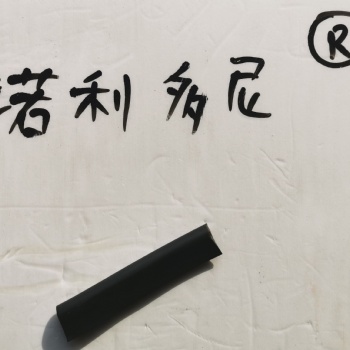 诺利多尼®